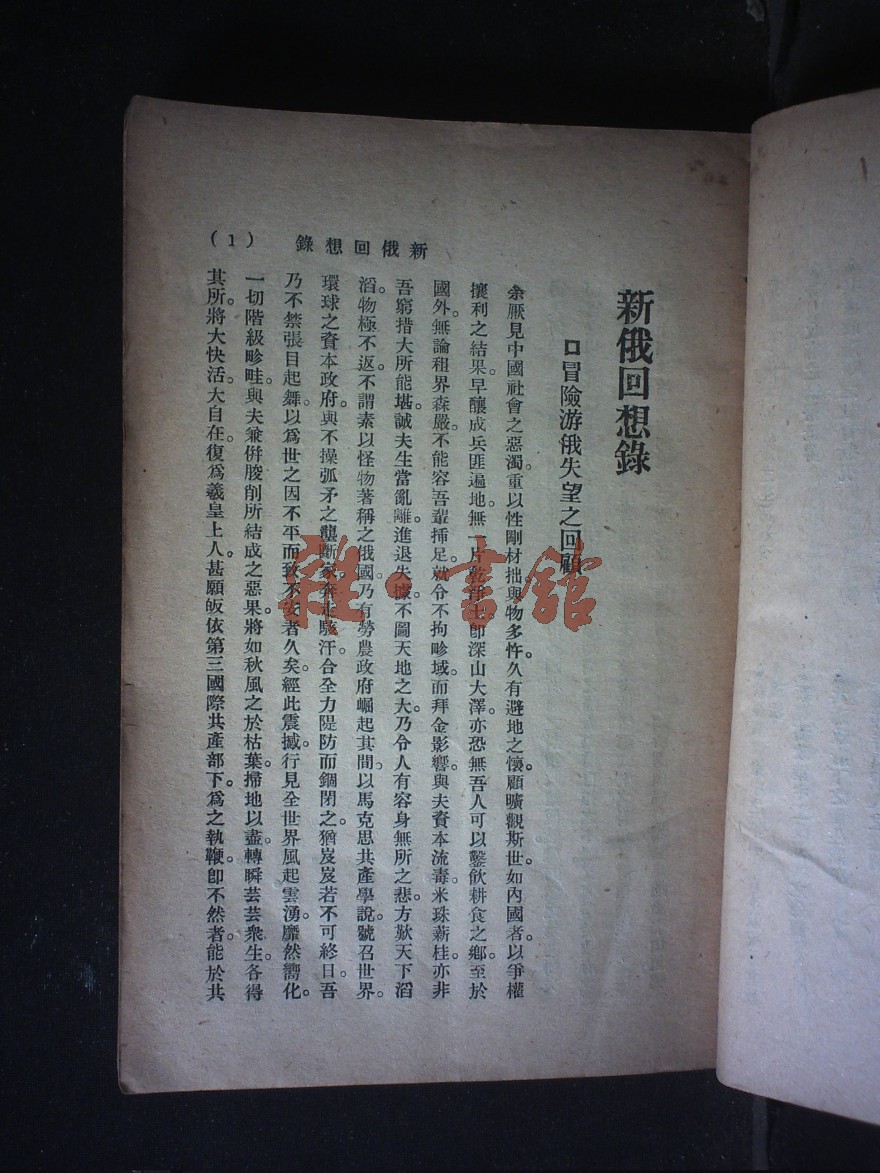 新俄回想錄
口冒險游俄失望之回顧
余厭見中國社會之惡濁。重以性剛材拙與物多忤。久有避地之懷。顧曠觀斯世。如內國者。以爭權
攘利之結果。早釀成兵匪遍地。無一片乾淨土。卽深山大澤。亦恐無吾人可以鑿飲耕食之鄉。至於
國外。無論租界森嚴。不能容吾輩揷足。就令不拘畛域。而拜金影響。與夫資本流毒。米珠薪桂。亦非
吾窮措大所能堪。誠夫生當亂離。進退失據。不圖天地之大。乃令人有容身無所之悲。方歎天下滔
滔。物極不返。不謂素以怪物著稱之俄國。乃有勞農政府崛起其間。以馬克思共產學說。號召世界。
環球之資本政府。與不操弧矛之壟斷家。奔走駭汗。合全力隄防而錮閉之。猶岌岌若不可終日。吾
乃不禁張目起舞。以爲世之因不平而致不安者久矣。經此震撼。行見全世界風起雲湧。靡然嚮化。
一切階級畛畦。與夫兼併朘削所結成之惡果。將如秋風之於枯葉。掃地以盡。轉瞬芸芸衆生。各得
其所。將大快活。大自在。復爲羲皇上人。甚願皈依第三國際共產部下。爲之執鞭。卽不然者。能於共
新俄回想錄 (1)
雜·書館